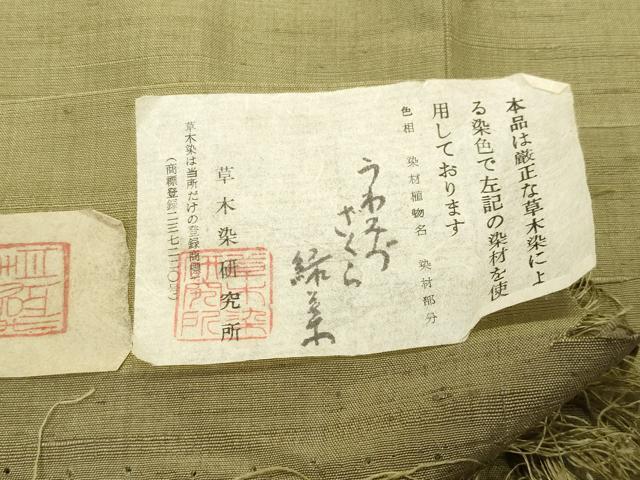 本品は厳正な草木染によ
る染色で左記の染材を使
用しております
色相　染材植物名　染材部分
うわみづ
ざくら
緑葉
草木染研究所
草木染は当所だけの登録商標です
(商標登録二三七二二〇号)
草木染
研究所